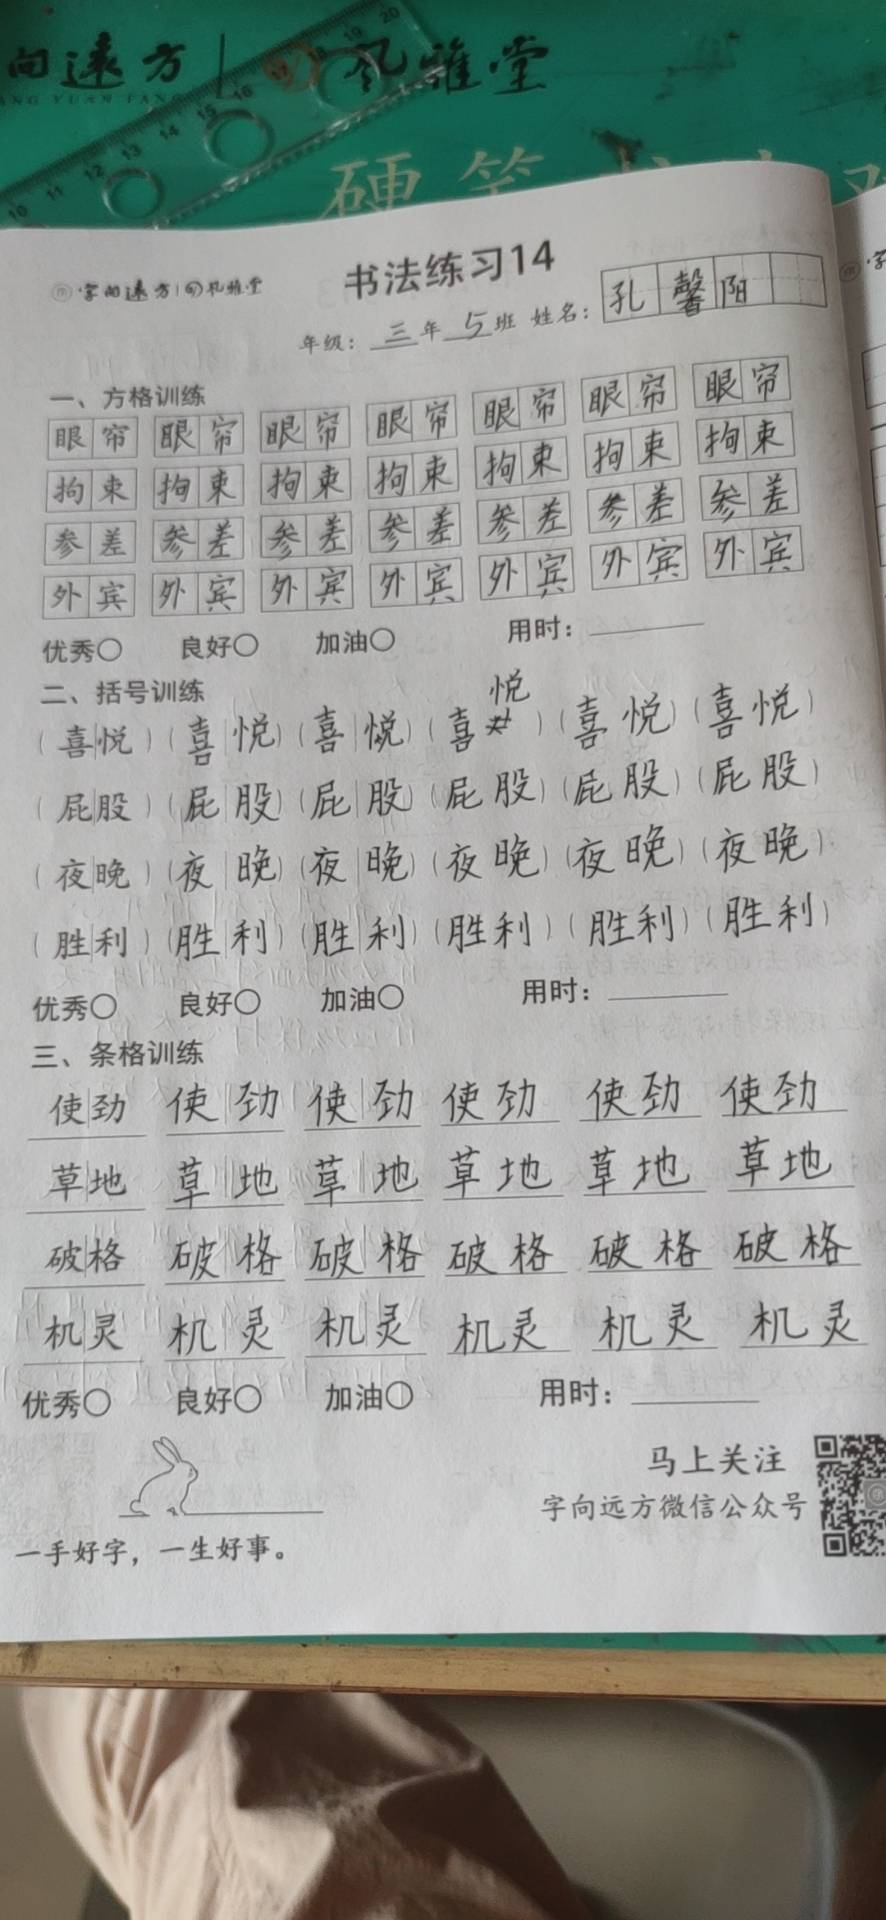 向遠方 孔雅堂
10 11 12 13 14 15 16 17 18 19 20
硬笔
字向遠方 孔雅堂
书法练习14
年级：三年5班 姓名：孔馨阳
一、方格训练
眼帘 眼帘 眼帘 眼帘 眼帘 眼帘 眼帘
拘束 拘束 拘束 拘束 拘束 拘束 拘束
参差 参差 参差 参差 参差 参差 参差
外宾 外宾 外宾 外宾 外宾 外宾 外宾
优秀○ 良好○ 加油○ 用时：
二、括号训练
悦
（喜悦）（喜悦）（喜悦）（喜）（喜悦）（喜悦）
（屁股）（屁股）（屁股）（屁股）（屁股）（屁股）
（夜晚）（夜晚）（夜晚）（夜晚）（夜晚）（夜晚）
（胜利）（胜利）（胜利）（胜利）（胜利）（胜利）
优秀○ 良好○ 加油○ 用时：
三、条格训练
使劲 使劲 使劲 使劲 使劲 使劲
草地 草地 草地 草地 草地 草地
破格 破格 破格 破格 破格 破格
机灵 机灵 机灵 机灵 机灵 机灵
优秀○ 良好○ 加油○ 用时：
马上关注
字向远方微信公众号
一手好字，一生好事。